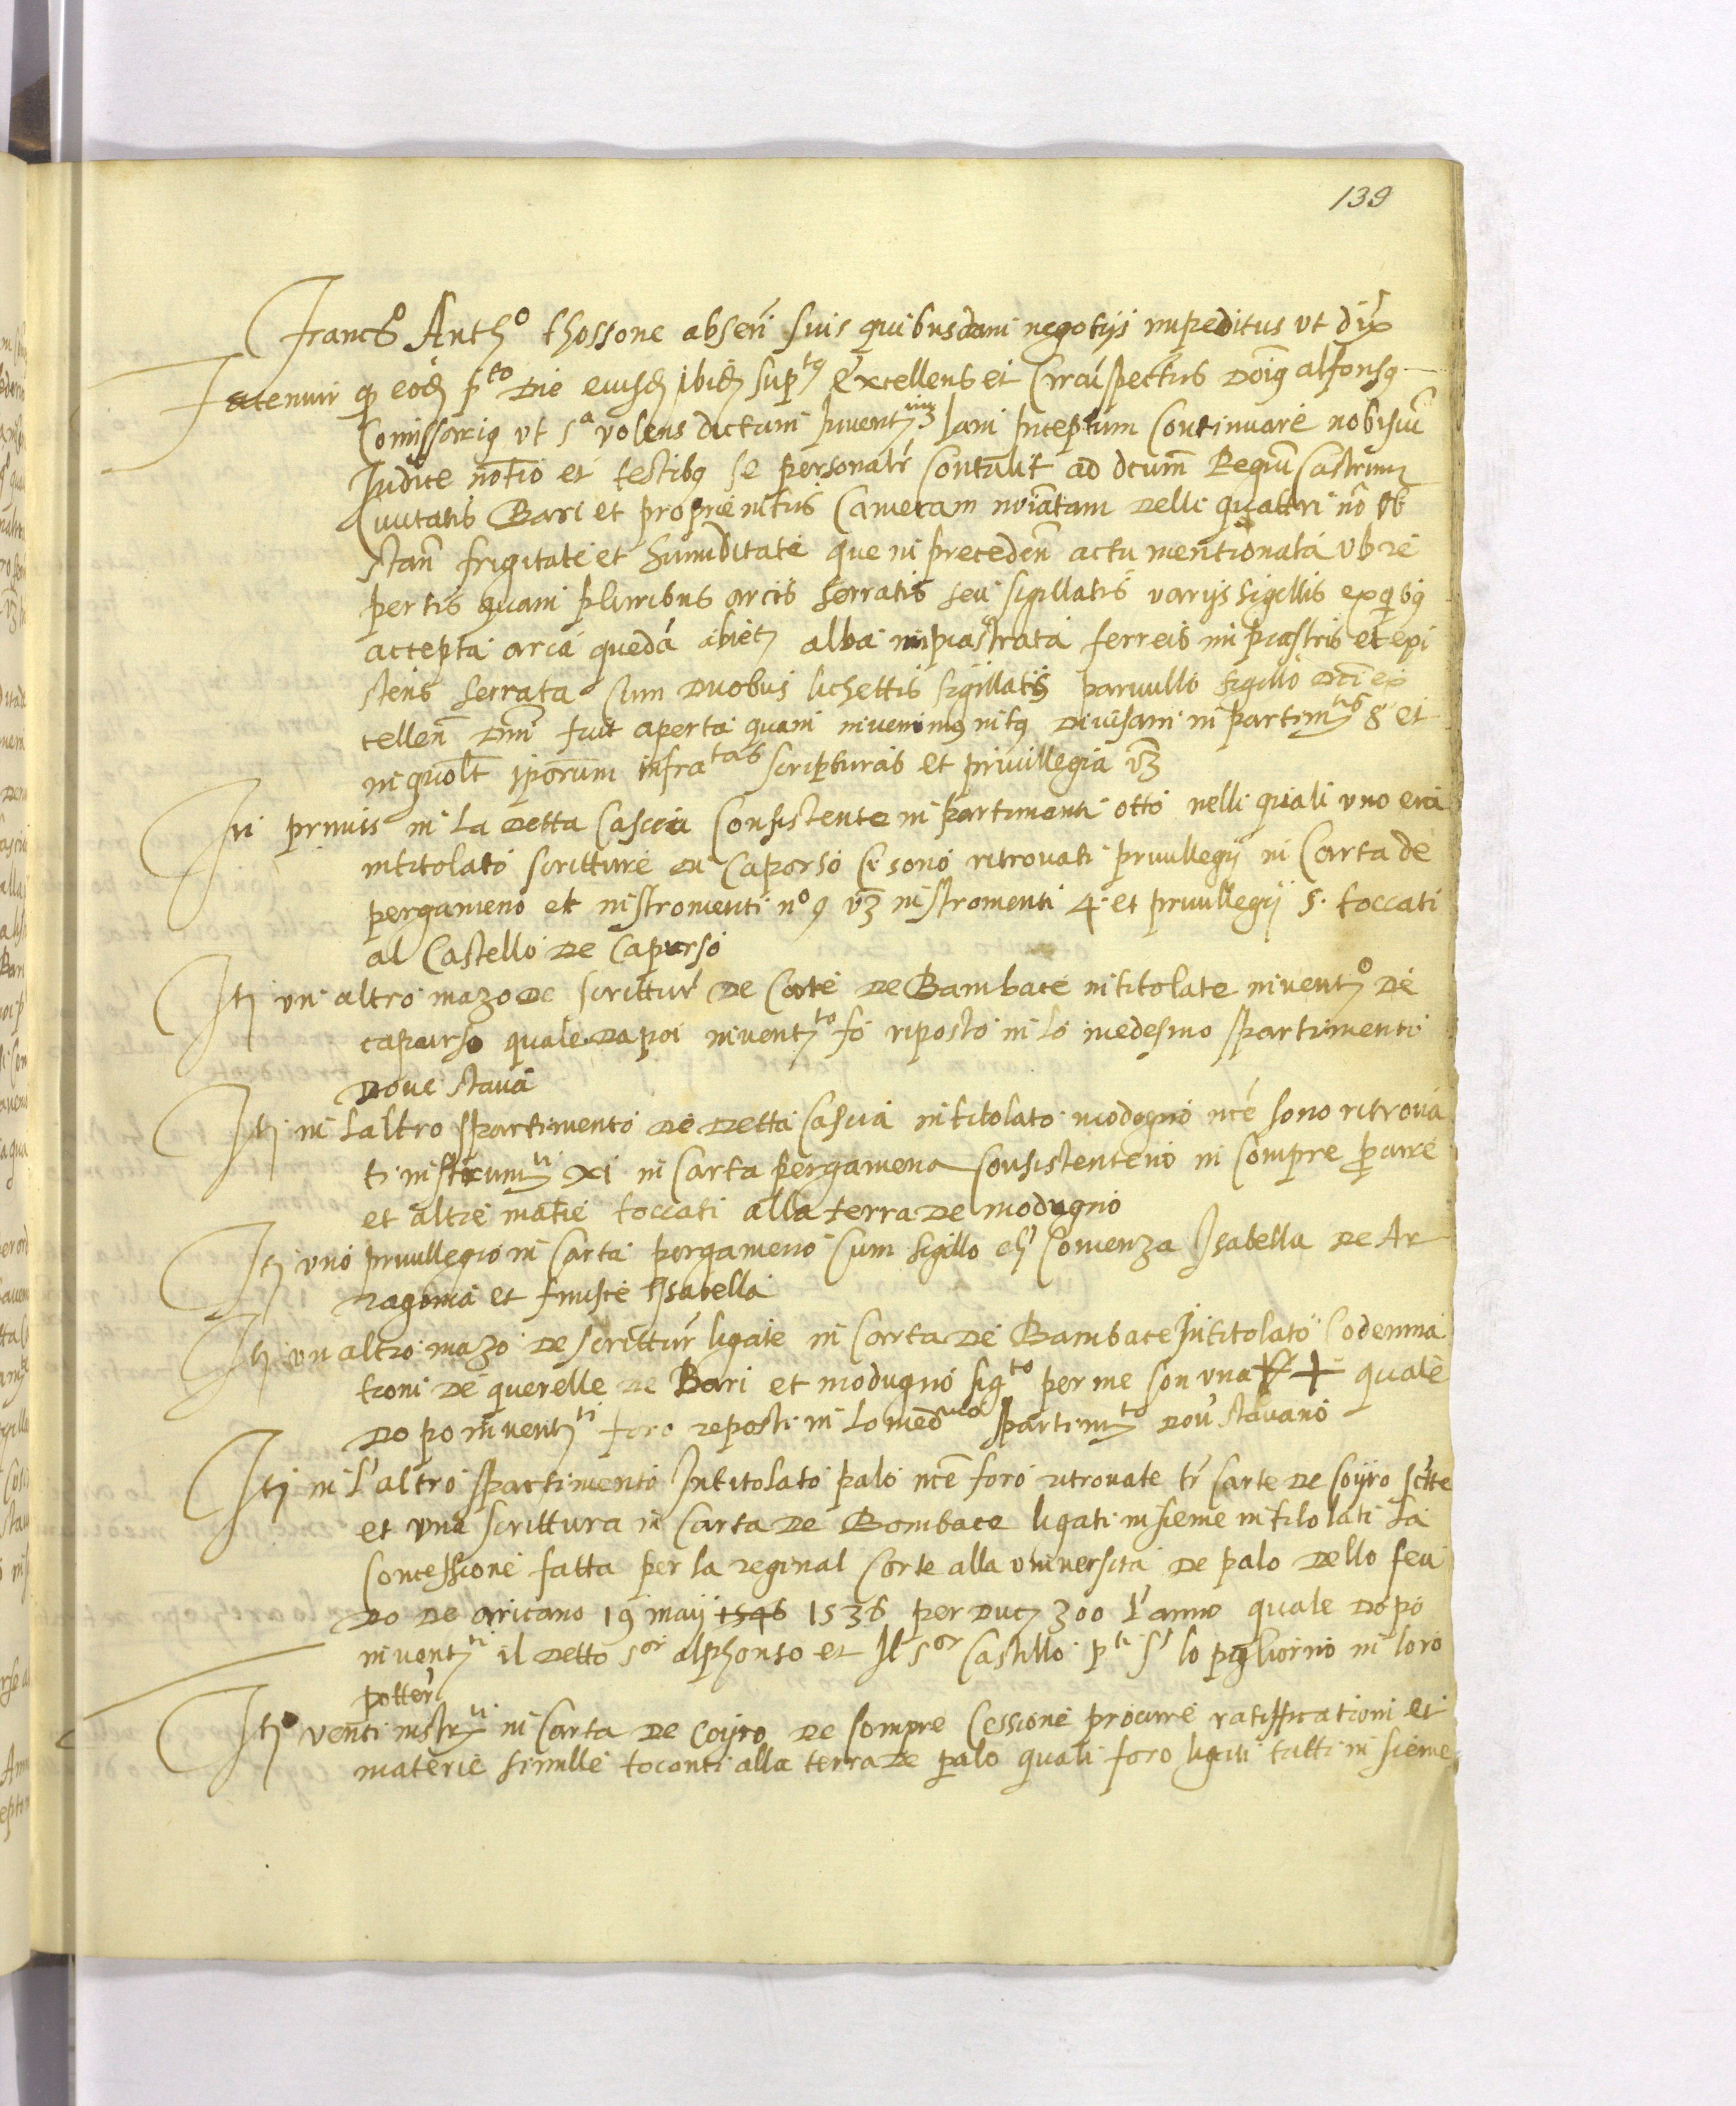 139
Franc.o Anth.o thossone absen suis quibusdam negotijs impeditus ut dix
Fatemur q eod p.to Die eiusd ibid sup.tus Excellens et Circuspectus Doius alfonsus
Comissarius ut s.a volens dictum Invent.um Iam Inceptum Continuare nobiscu
Iudice notio et testibus se personalr Contulit ad dcum Regiu Castrum
Civitatis Bari et proprie intus Cameram noiatam delli quattri no ob
stan frigitate et humiditate que in preceden actu mentionata ubi re
pertis quam pluribus arcis serratis seu sigillatis varijs sigillis ex qibus
accepta arca queda abiet alba inpiastrata ferreis inpiastris et epi
stens serrata Cum Duobus lichettis sigillatis parvullo sigillo dci ex
cellen Dni fuit aperta quam invenimus intus Divisam in partim.tis 8 et
in quolt ipsorum infra.tas scripturas et privillegia vz
In primis in La Detta Cascia Consistente in partimenti otto nelli quali uno era
intitolato scritture di Caporso se sono ritrovati privillegij in Carta de
pergameno et instromenti n.o 9 vz instromenti 4. et privillegij 5. toccati
al Castello de Capurso
Itj un altro mazo de scrittur de Carte de Bambace intitolate invent.o de
capurso quale dapoi invent.to fo riposto in lo medesmo spartimenti
dove stava
Itj in Laltro spartimento de detta Cascia intitolato modogno nce sono ritrova
ti instrum.ti xi in Carta pergamena Consistenteno in Compre p cure
et altre matie toccati alla terra de modugno
Itj uno privillegio in Carta pergameno Cum sigillo ch Comenza Isabella de Ar
ragonia et finisce Isabella
Itj un altro mazo de scrittur ligate in Carta de Bambace Intitolato Codenna
tioni de querelle de Bari et modugno sig.to per me con una + quale
dopo invent.ti foro reposti in lo med.mo spartim.to dov stavano
Itj in L'altro spartimento Intitolato palo nce foro ritrovate tr Carte de Coijro scritte
et una scrittura in Carta de Bombace ligati insieme intitolati La
Concessione fatta per la reginal Corte alla universita de palo dello feu
do de aricano 19 maij 1546 1536 per Duc 300 L'anno quale dopo
invent.ti il detto s.or alphonso et Il s.or Castillo p.ti s.ri lo pigliorno in loro
potter
It.o venti instr.ti in Carta de Coijro de Compre Cessione procure ratifficationi et
materie simille toconti alla terra de palo quali foro ligati tutti in sieme